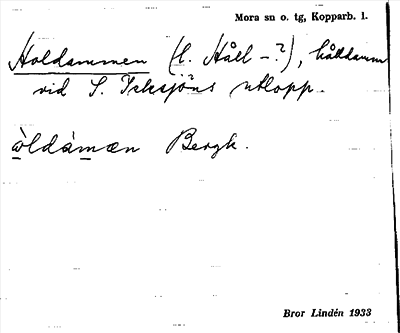 Mora sn o. tg, Kopparb. l.
Holdammen (l. Håll-?), hålldamm
vid S. Icksjöns utlopp.
òldámæn Bergk.
Bror Lindén 1933